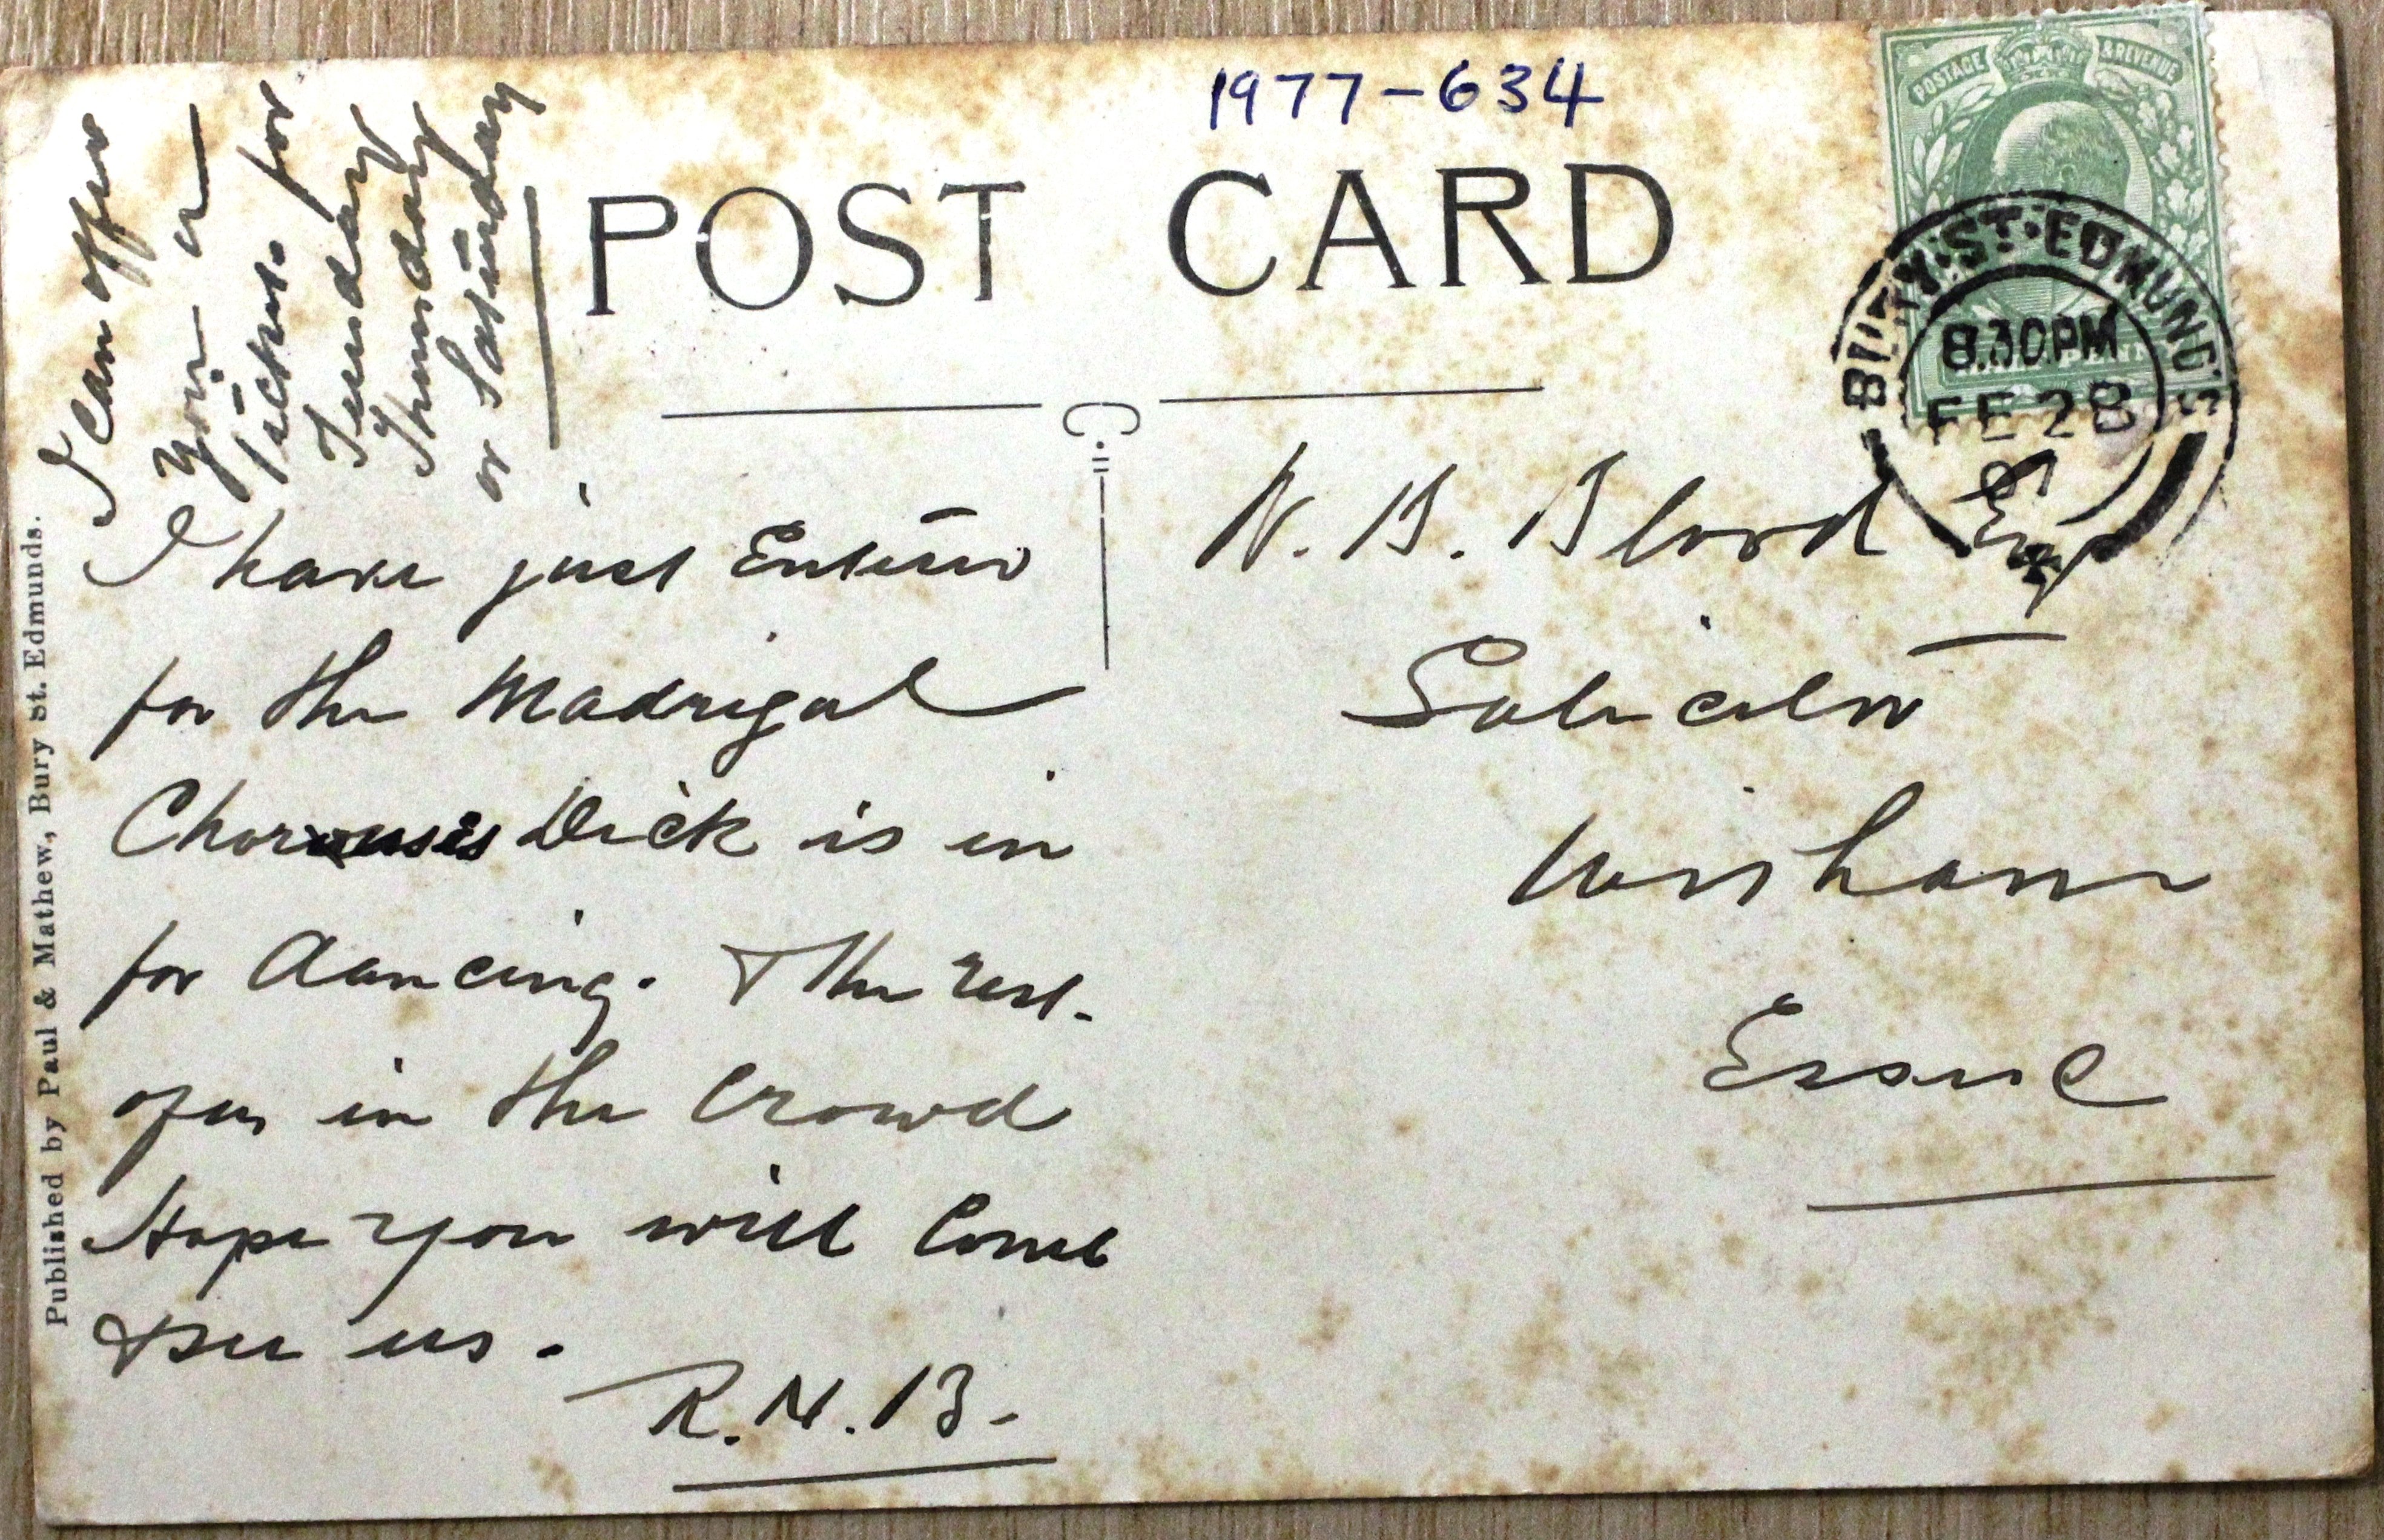 1977-634
POST CARD
POSTAGE & REVENUE
BURY ST. EDMUND'S
8.30PM
FE 28
07
I can offer
you
tickets for
Tuesday
Thursday
or Saturday
I have just
for the Madrigal
Choruses Dick is in
for dancing. The rest
of us in the Crowd
Hope you will come
& see us.
R.N.B.
W. B. Blood Esq
Solicitor
Witham
Essex
Published by Paul & Mathew., Bury St. Edmunds.